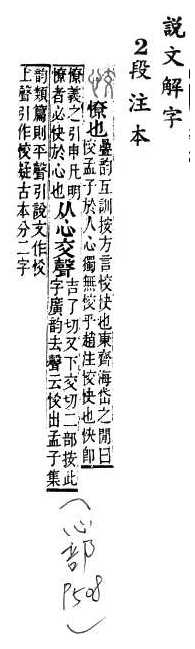 說文解字
2段注本
憭也
疊韵互訓按方言恔快也東齊海岱之閒曰
恔孟子於人心獨無恔乎趙注恔快也快卽
憭義之引申凡明
憭者必快於心也
从心交聲
吉了切又下交切二部按此
字廣韵去聲云恔出孟子集
韵類篇則平聲引說文作恔
上聲引作恔疑古本分二字
(心部 P508)